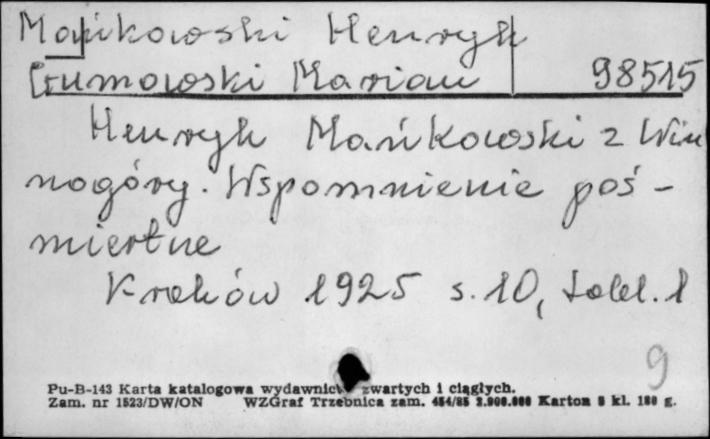 Mańkowski Henryk
Gumowski Marian 98515
Henryk Mańkowski z Win
nogóry. Wspomnienie poś-
miertne
Kraków 1925 s. 10, tabl. 1
9
Pu-B-143 Karta katalogowa wydawnictw zwartych i ciągłych.
Zam. nr 1523/DW/ON WZGraf Trzebnica zam. 454/85 2.000.000 Karton 8 kl. 180 g.